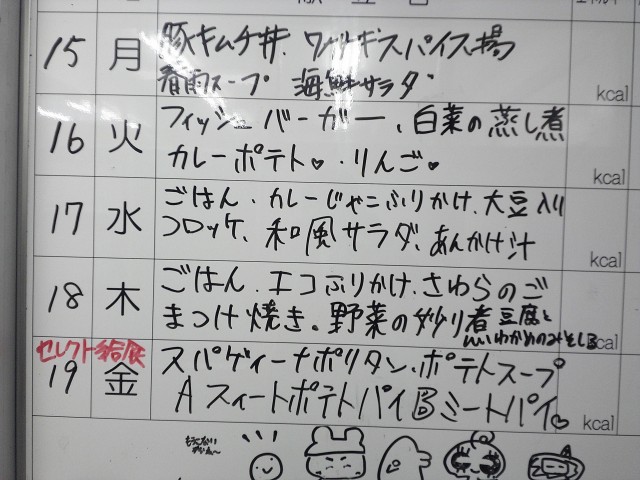 15 月 豚キムチ丼、ワカサギスパイス揚
春雨スープ 海鮮サラダ
kcal
16 火 フィッシュバーガー、白菜の蒸し煮
カレーポテト♥・りんご♥
kcal
17 水 ごはん、カレーじゃこふりかけ、大豆入り
コロッケ、和風サラダ、あんかけ汁
kcal
18 木 ごはん、エコふりかけ、さわらのご
まつけ焼き。野菜の炒り煮 豆腐と
わかめのみそしる
kcal
セレクト給食
19 金 スパゲィーナポリタン、ポテトスープ
Aスィートポテトパイ Bミートパイ♥
kcal